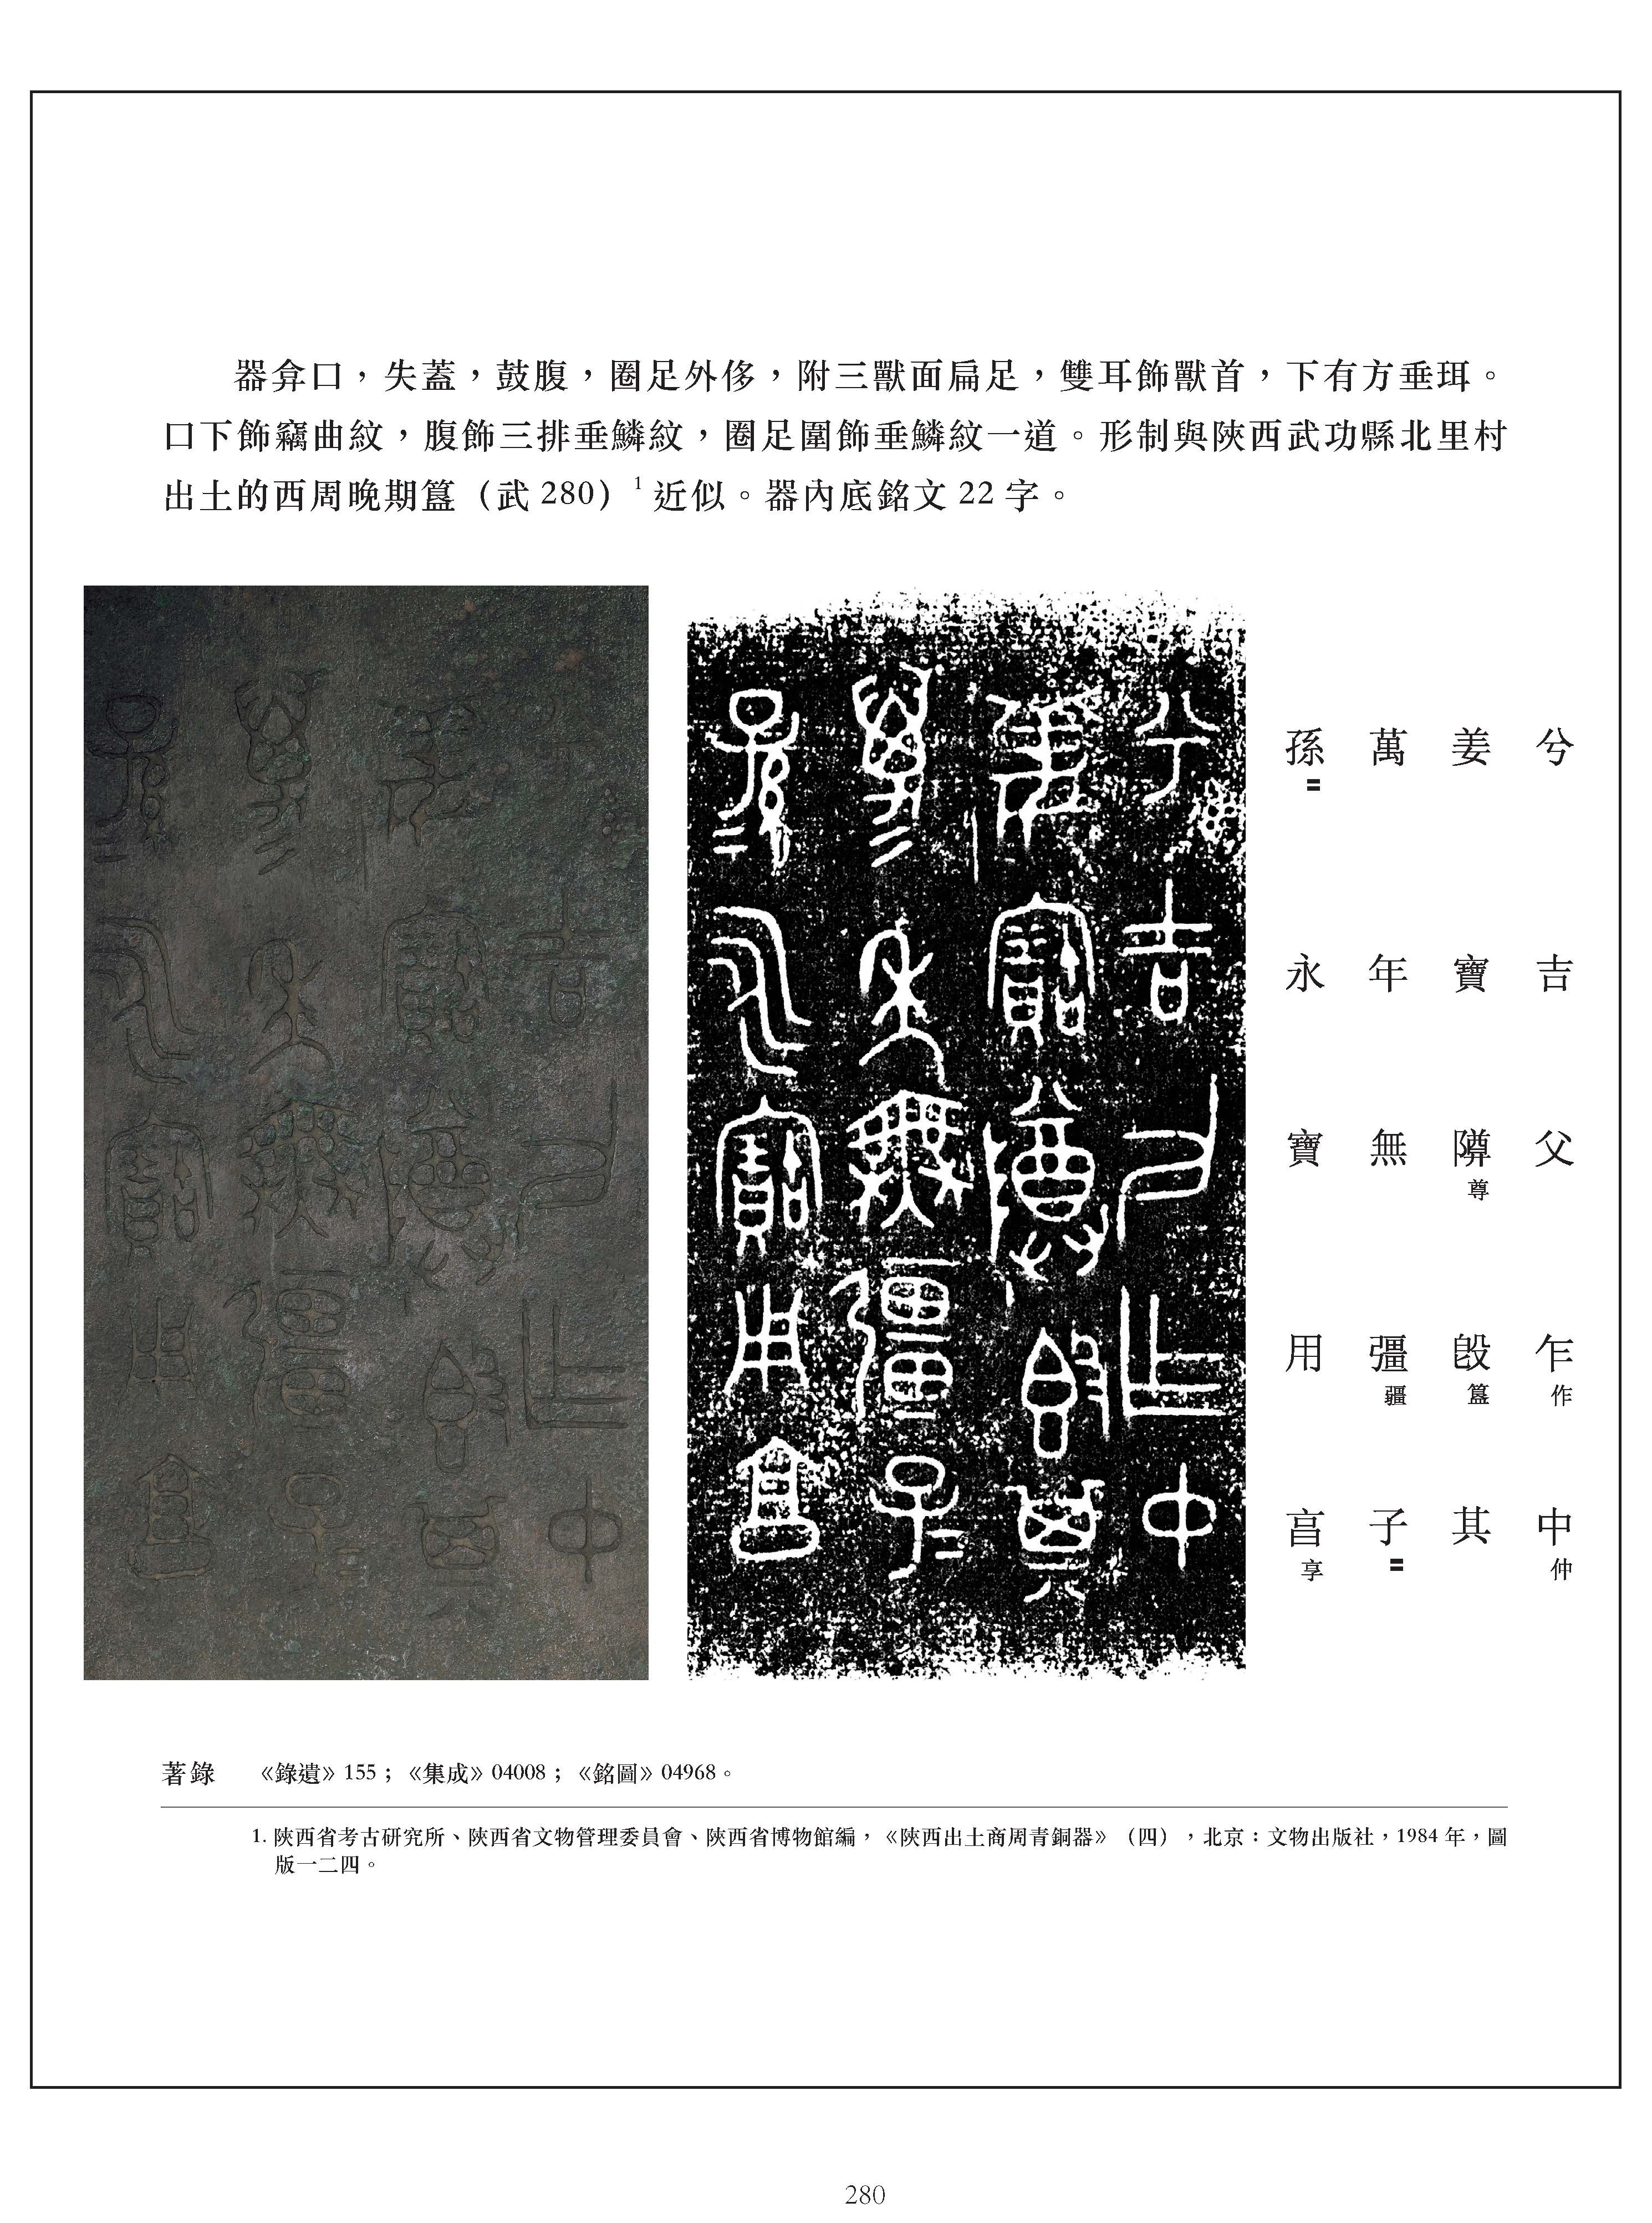 器弇口，失蓋，鼓腹，圈足外侈，附三獸面扁足，雙耳飾獸首，下有方垂珥。
口下飾竊曲紋，腹飾三排垂鱗紋，圈足圍飾垂鱗紋一道。形制與陝西武功縣北里村
出土的西周晚期簋（武 280）1 近似。器內底銘文 22 字。
兮吉父乍（作）中（仲）
姜寶隣（尊）𣪘（簋）其
萬年無彊（疆）子〓
孫〓永寶用亯（享）
著錄 《錄遺》155；《集成》04008；《銘圖》04968。
1. 陝西省考古研究所、陝西省文物管理委員會、陝西省博物館編，《陝西出土商周青銅器》（四），北京：文物出版社，1984 年，圖
版一二四。
280